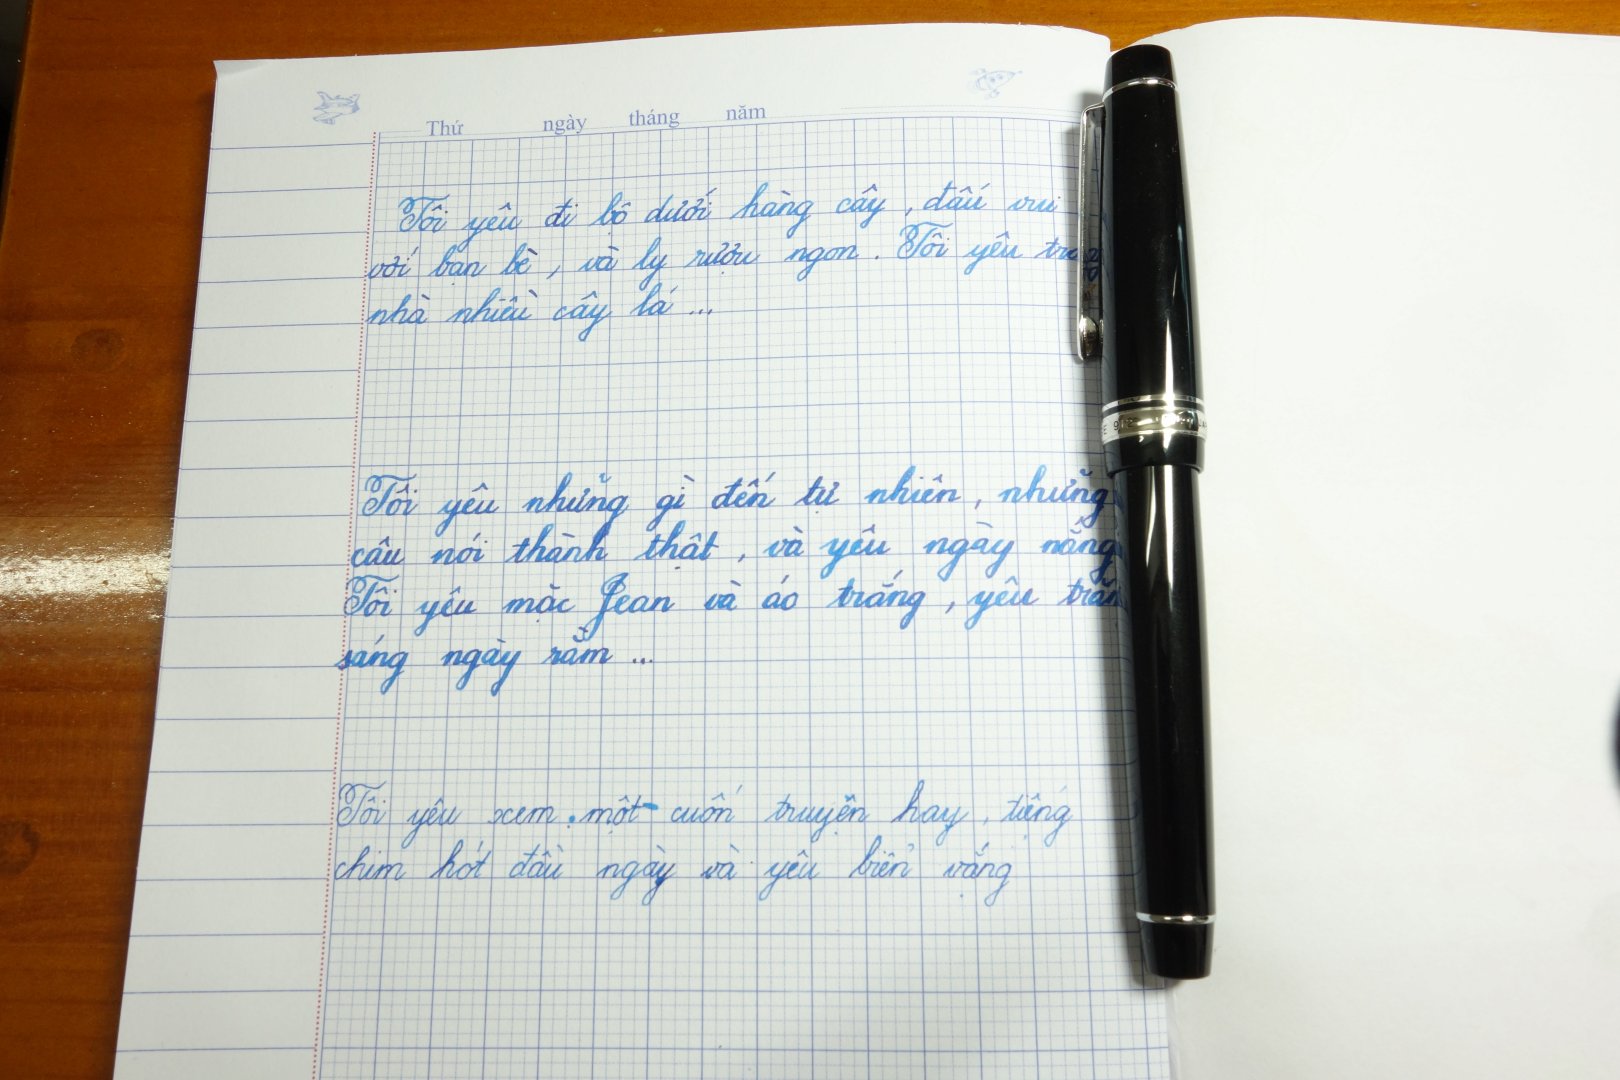 Thứ ngày tháng năm
Tôi yêu đi bộ dưới hàng cây, đấu vui
với bạn bè, và ly rượu ngon. Tôi yêu
nhà nhiều cây lá ...
Tôi yêu những gì đến tự nhiên, những
câu nói thành thật, và yêu ngày nắng
Tôi yêu mặc Jean và áo trắng, yêu
sáng ngày rằm ...
Tôi yêu xem một cuốn truyện hay, tiếng
chim hót đầu ngày và yêu biển vắng
912